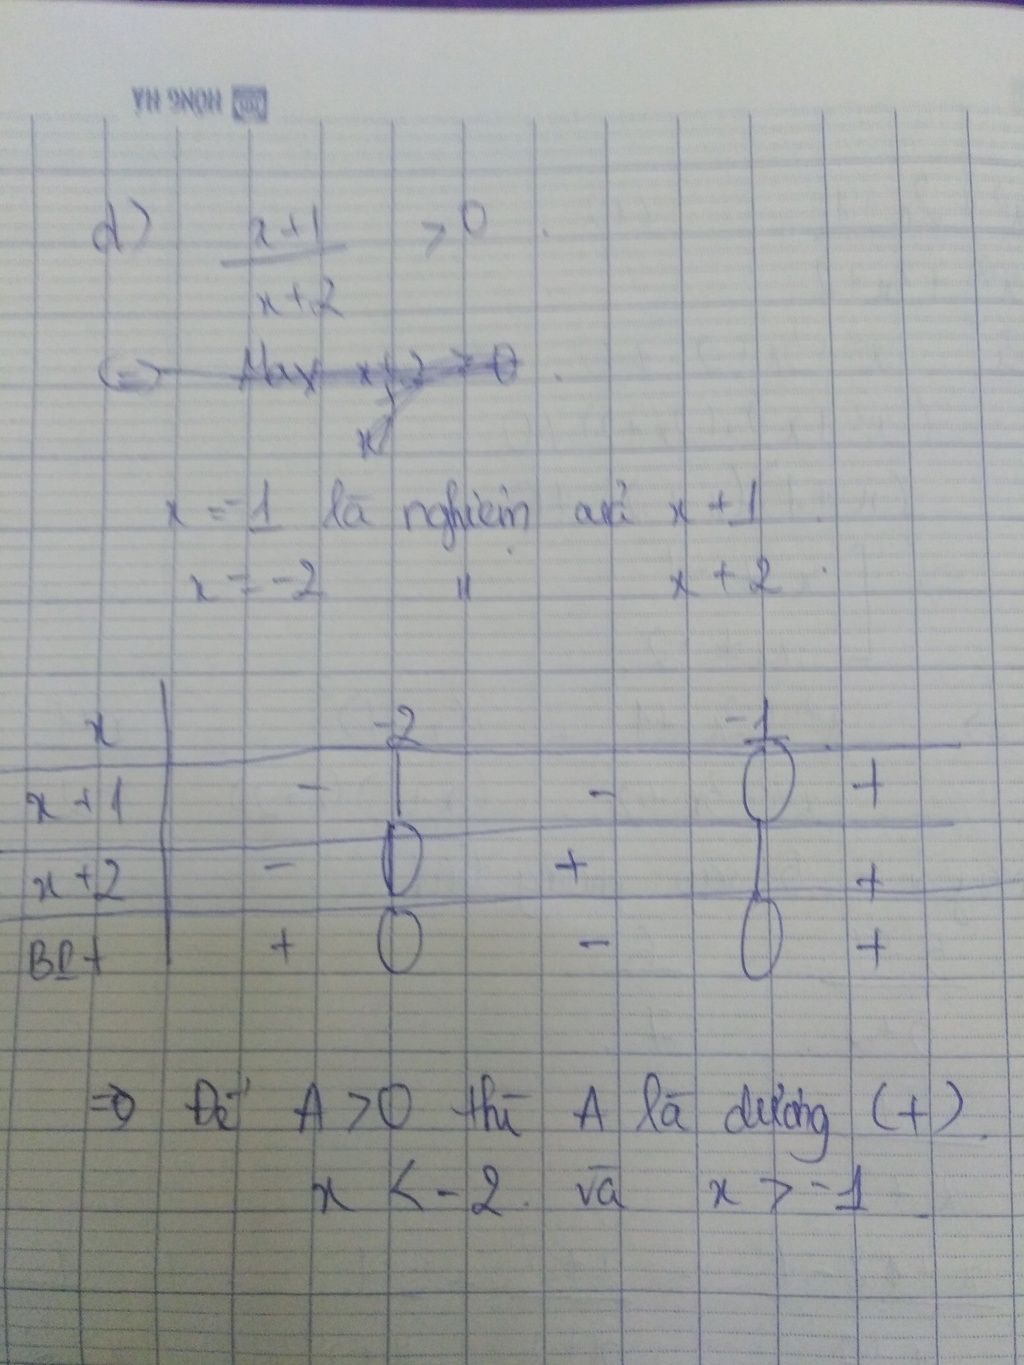 HONG HA
d) x+1 > 0
x+2
x = -1 là nghiệm của x + 1
x = -2 " x + 2
x -2 -1
x + 1 - | - 0 +
x + 2 - 0 + | +
+ 0 - 0 +
=> Để A > 0 thì A là dương (+)
x < -2. và x > -1